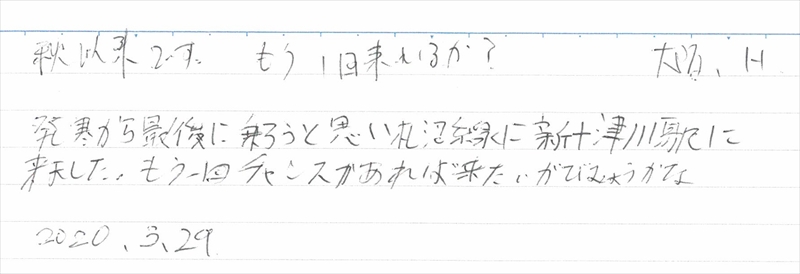 秋以来です。 もう1回来れるか? 大阪、H
発寒から最後に乗ろうと思い札沼線に新十津川駅に
来ました。もう一回チャンスがあれば来たいがどうかな
2020、3、29